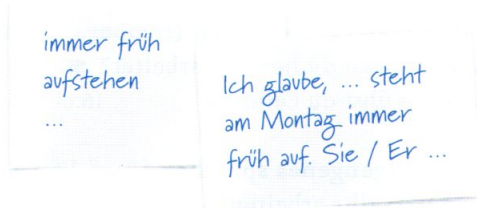 immer früh
aufstehen
...
Ich glaube, ... steht
am Montag immer
früh auf. Sie / Er ...